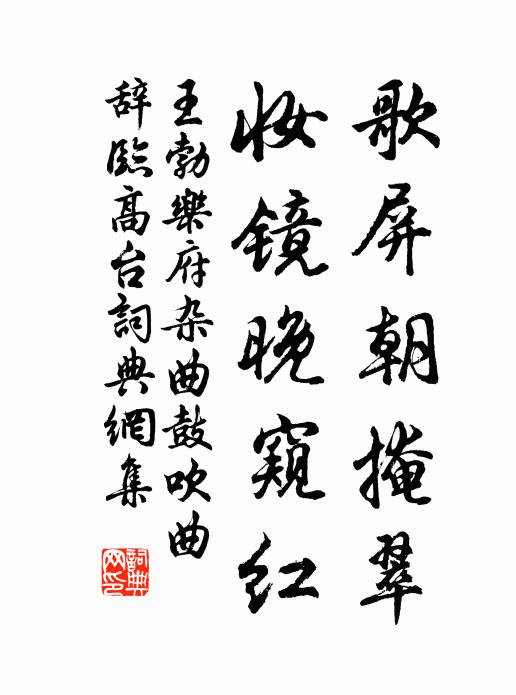 歌屏朝掩翠
妆镜晚窥红
王勃樂府杂曲鼓吹曲
辞臨高台詞典網集
詞典网印